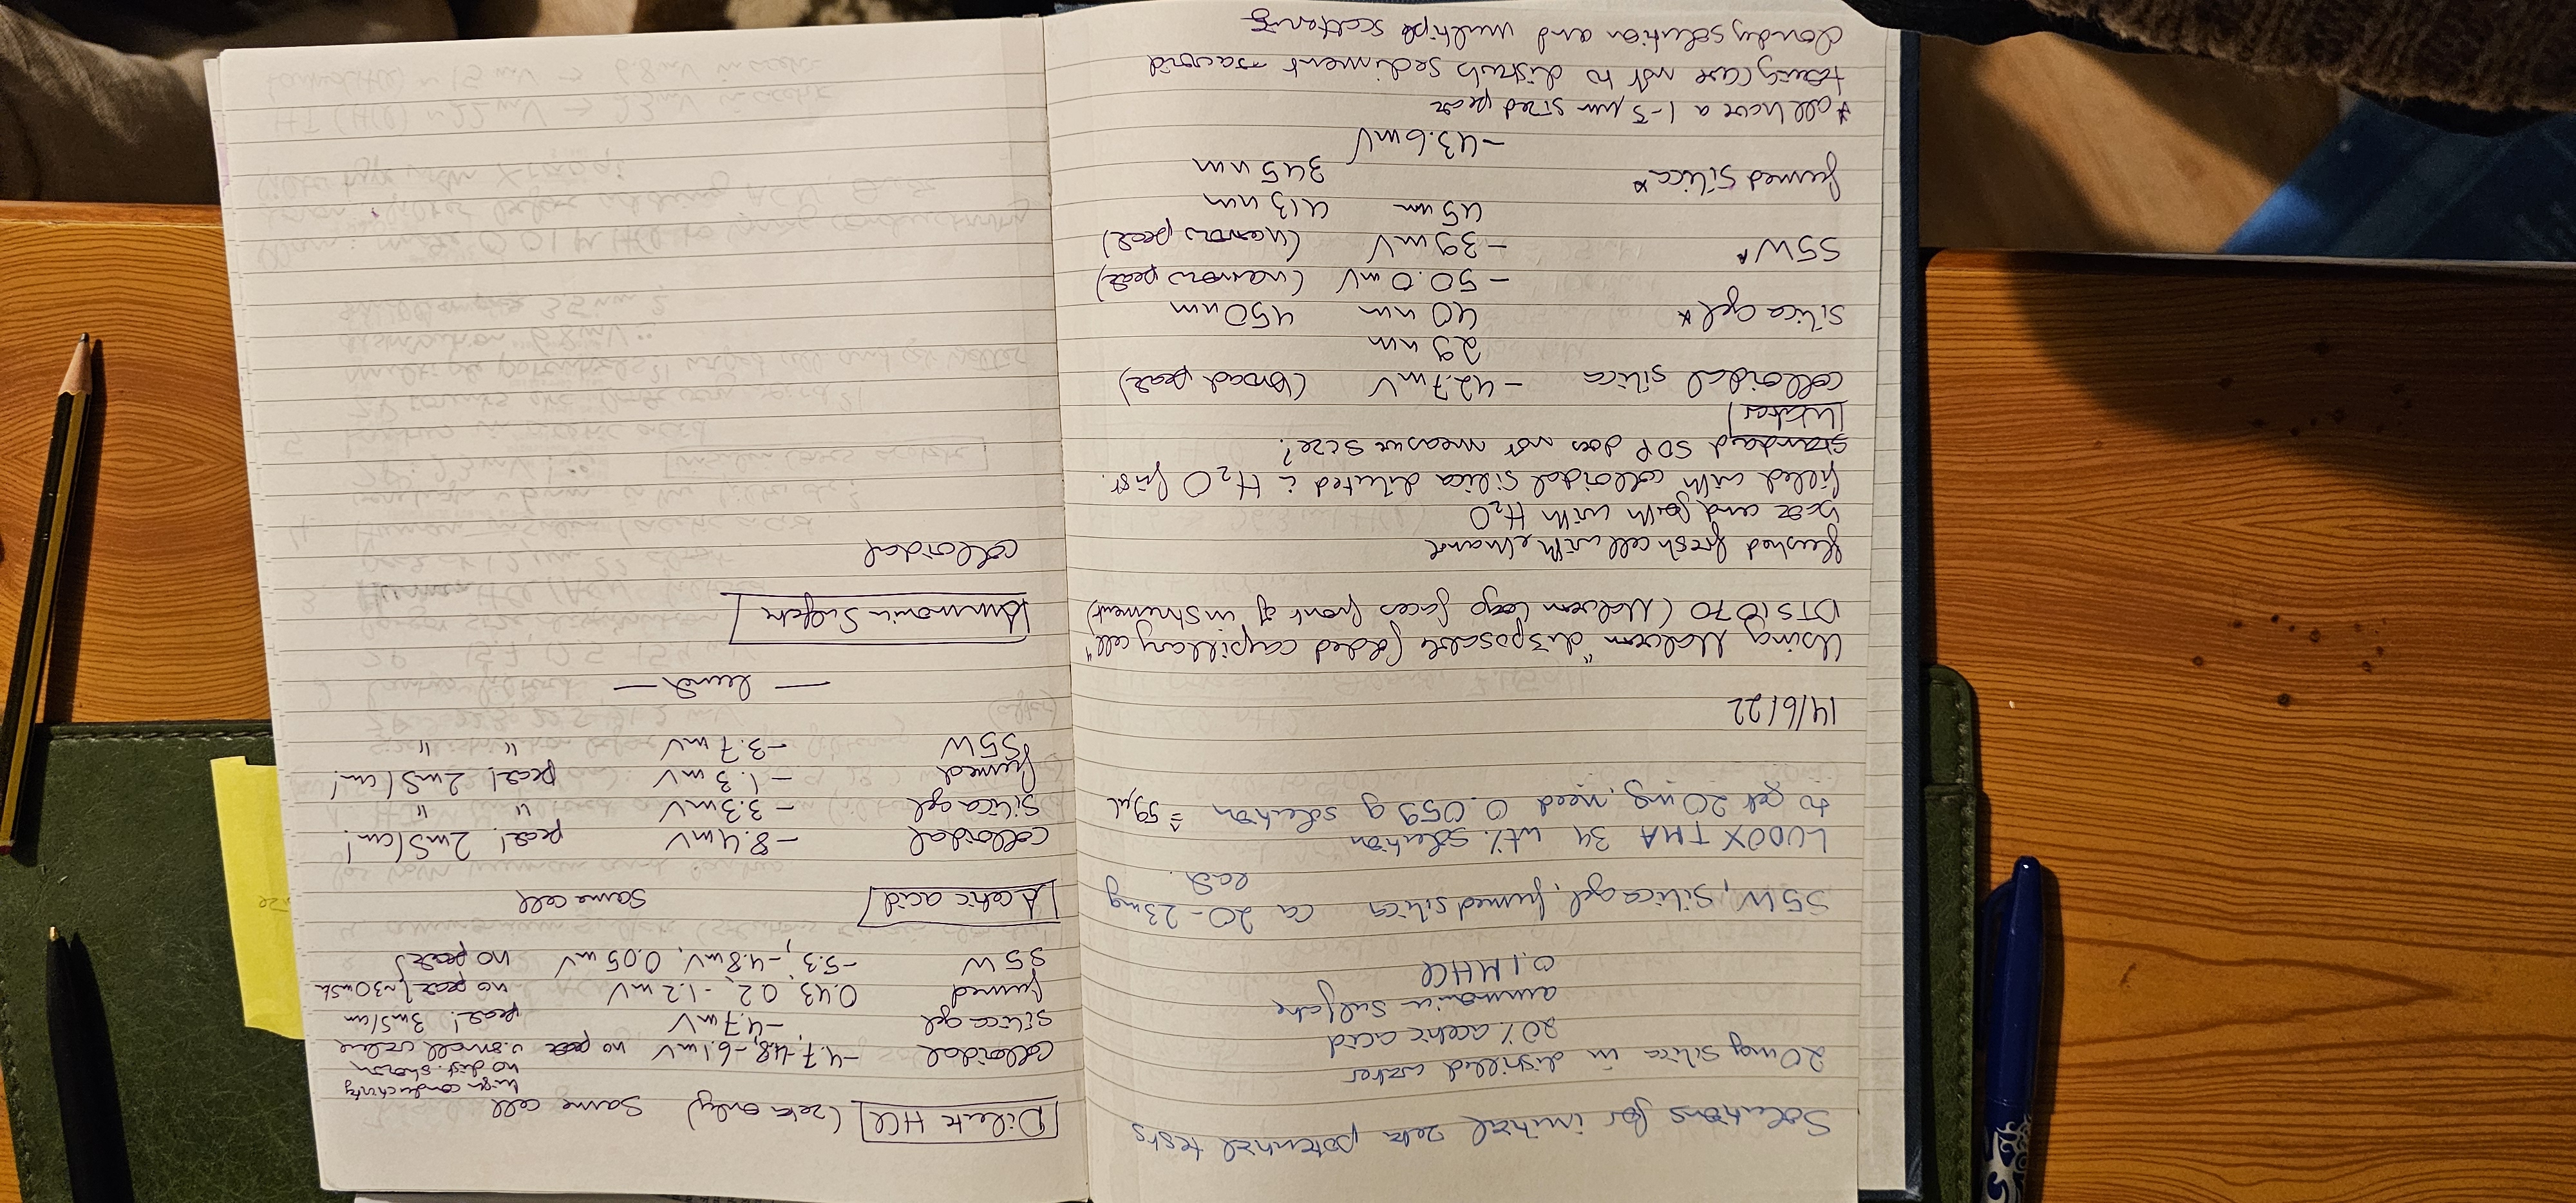 Solutions for initial zeta potential tests
20mg silica in distilled water
20% acetic acid
ammonium sulfate
0.1M HCl
S5W, silica gel, fumed silica ca 20-23mg
each.
LUDOX TMA 34 wt% solution
to get 20mg, need 0.059 g solution ≙ 59µL
14/6/22
Using Malvern "disposable folded capillary cell"
DTS1070 (Malvern logo faces front of instrument)
flushed fresh cell with ethanol
back and forth with H2O
filled with colloidal silica diluted in H2O first.
standard SOP does not measure size?
Water
colloidal silica -42.7mV (broad peak)
29 nm
silica gel* 40 nm 450nm
-50.0 mV (narrow peak)
S5W* -39mV (narrow peak)
45nm 413 nm
fumed silica* 345 nm
-43.6mV
*all have a 1-5 µm sized peak
taking care not to disturb sediment → avoid
cloudy solution and multiple scattering
Dilute HCl (zeta only) same cell
high conductivity
no dist. shown
colloidal -4.7, -4.8, -6.1mV no peak v. small volume
silica gel -4.7mV peak! 3mS/cm
fumed 0.43, 0.2, -1.2 mV no peak
S5W -5.3, -4.8mV, 0.05mV no peak
Acetic acid same cell
colloidal -8.4mV peak! 2mS/cm!
silica gel -3.3mV " "
fumed -1.3 mV peak! 2mS/cm!
S5W -3.7 mV " "
— lunch —
Ammonium Sulfate
colloidal